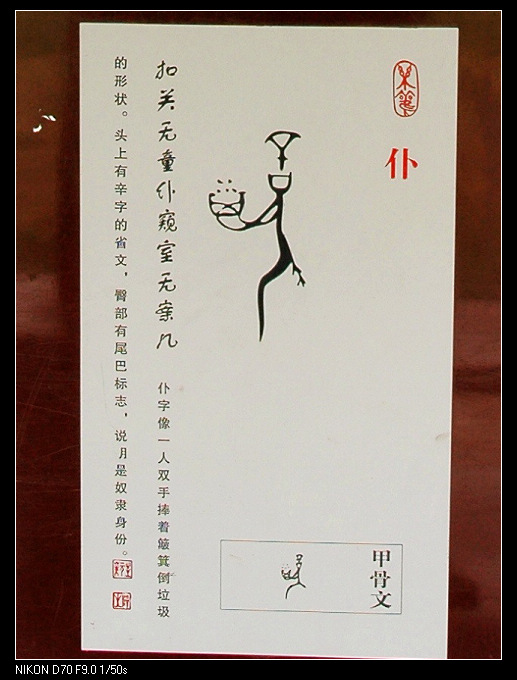 仆
扣关无童仆窥室无案几
仆字像一人双手捧着簸箕倒垃圾
的形状。头上有辛字的省文，臀部有尾巴标志，说月是奴隶身份。
甲骨文
NIKON D70 F9.0 1/50s